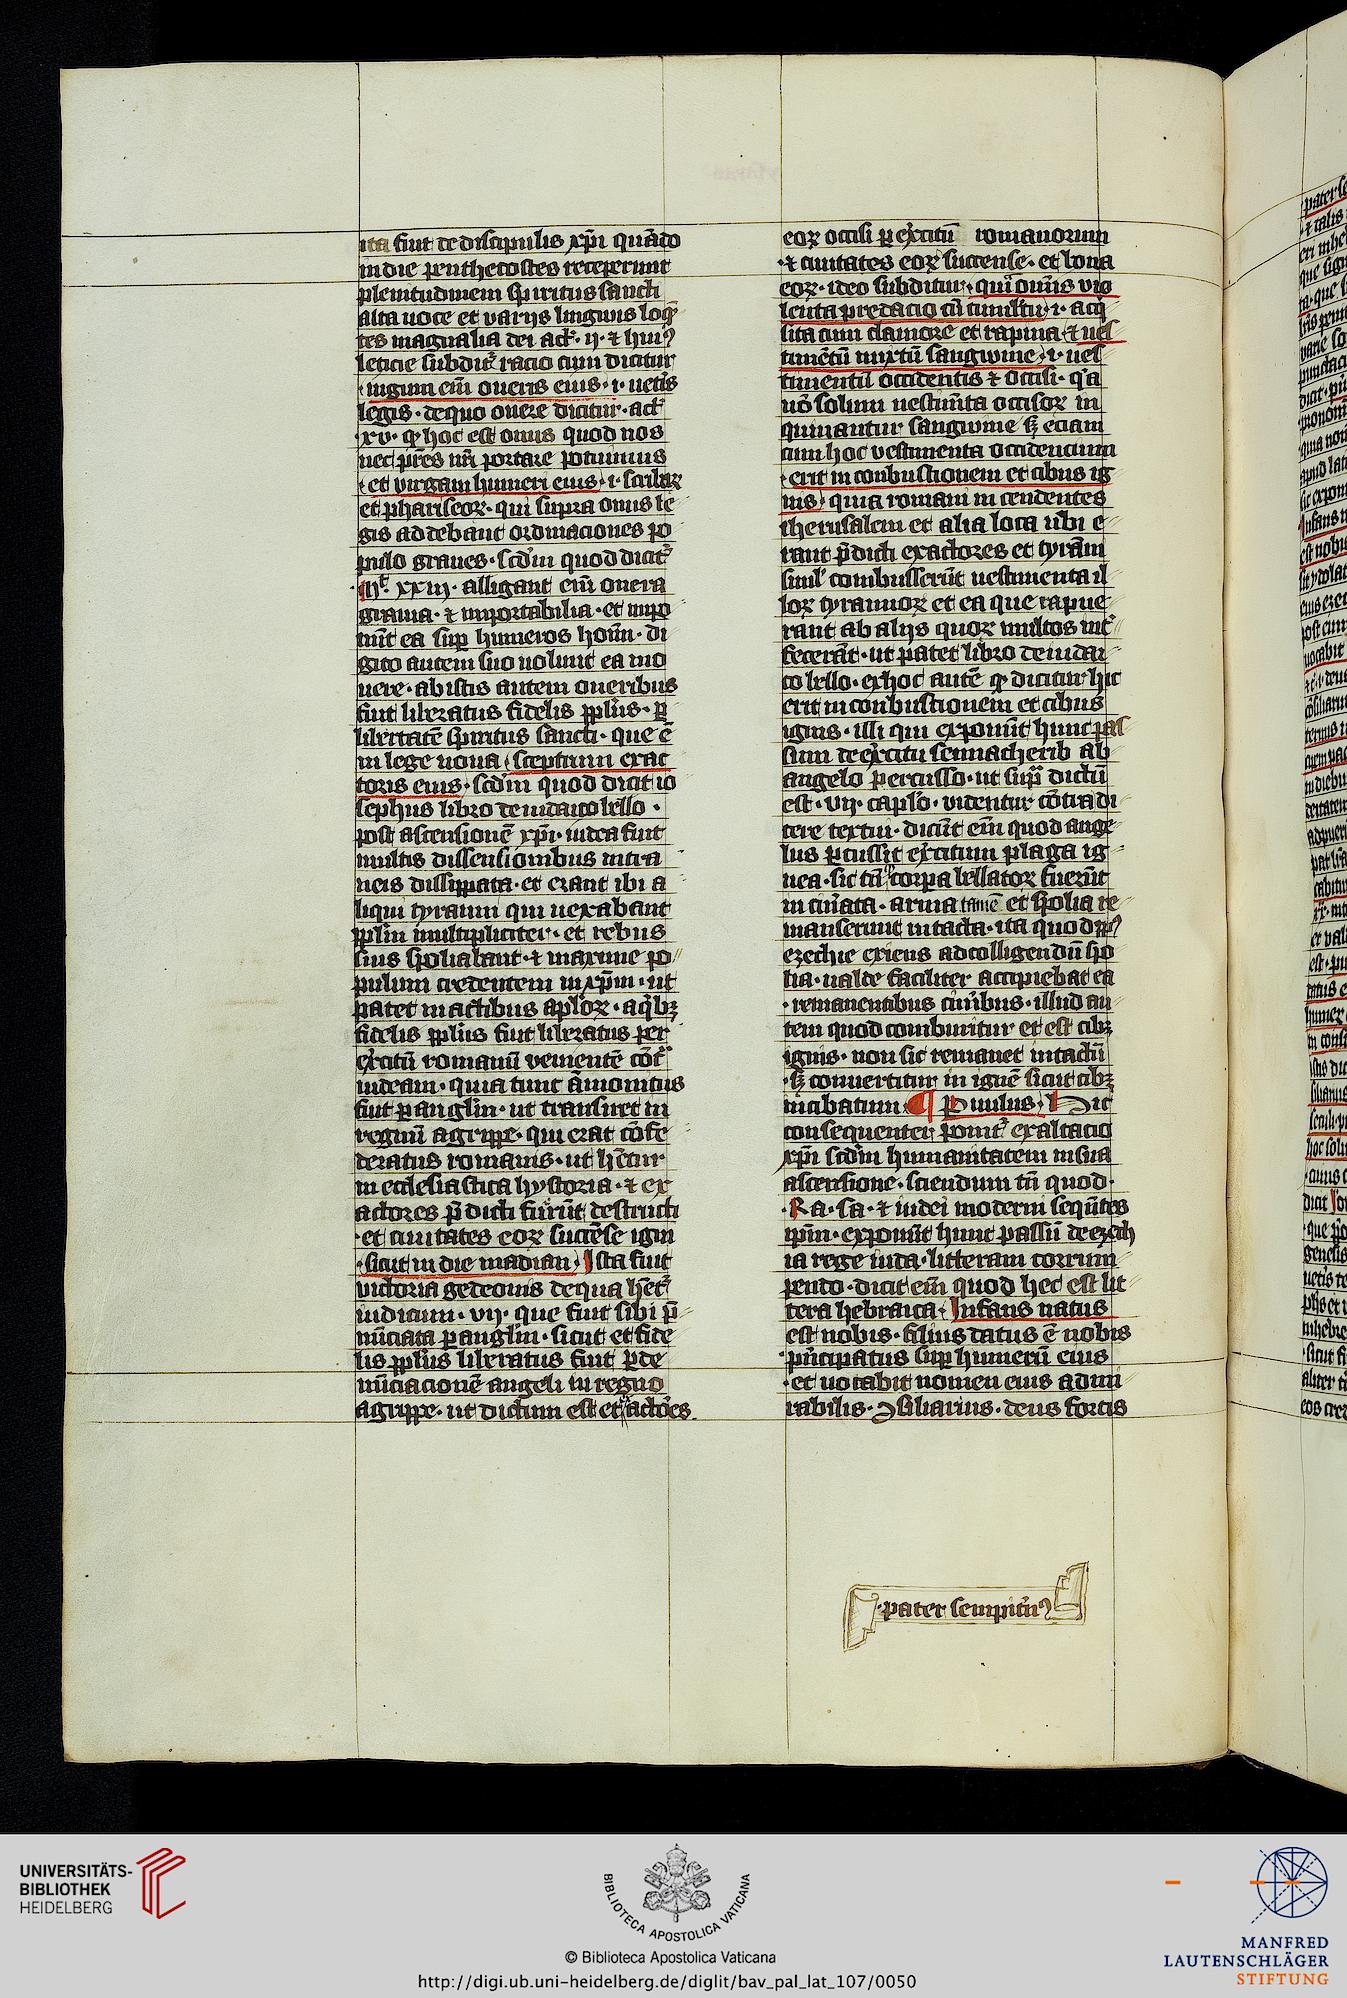 ita fuit de discipulis xp̄i quādo
in die penthecostes receperunt
plenitudinem spiritus sancti
alta uoce et varijs lingwis loq̄
tes magnalia dei act᷒· ij· ⁊ huiꝰ
leticie subdit᷒ racio cum dicitur
·iugum em̄ oneris eius·i· uet᷒is
legis· de quo onere dicitur· act᷒
·xv· ꝙ hoc est onus quod nos
nec pr̄es nr̄i portare potuimus
·et virgam humeri eius· i· scribaꝝ
et phariseoꝝ· qui supra onus le
gis addebant ordinaciones po
pulo graues· scd̄m quod dicit᷒
xxiij· alligant em̄ onera
grauia· ⁊ importabilia· et impo
nūt ea sup̱ humeros hoīm· di
gito autem suo nolunt ea mo
uere· ab istis autem oneribus
fuit liberatus fidelis pp̄lus· ꝑ
libertatē spiritus sancti· que ē
in lege noua· sceptrum exac
toris eius· scd̄m quod dicit io
sephus libro de iudaico bello·
post ascensionē xp̄i· iudea fuit
multis dissensionibus intra
neis dissippata· et erant ibi a
liqui tyranni qui uexabant
pp̄lm multipliciter· et rebus
suis spoliabant· ⁊ maxime po
pulum credentem in xp̄m· ut
patet in actibus ap̄loꝝ· a q̇bꝫ
fidelis pp̄lus fuit liberatus per
ex̄citū romanū venientē cōt᷒
iudeam· quia tunc āmonitus
fuit ꝑ angl̄m· ut transiret in
regnū agrippe· qui erat cōfe
deratus romanis· ut h̄etur
in ecclesiastica hystoria· ⁊ ex
actores p̄dicti fuerūt destructi
·et ciuitates eoꝝ succēse igni
·sicut in die madian· Ista fuit
victoria gedeonis de qua h̄et᷒
iudicum· vij· que fuit sibi p̄
nūciata ꝑ angl̄m· sicut et fide
lis pp̄lus liberatus fuit ꝑ de
nūciacionē angeli in regno
agrippe· ut dictum est et exactōres
eoꝝ occisi ꝑ ex̄citū romanorum
·⁊ ciuitates eoꝝ succense· et bona
eoꝝ· ideo subditur· quī om̄is vio
lenta predacio cū tumultu· i· acq̇
sita cum clamore et rapina· ⁊ ues
timētū mixtū sangwine· i· ues
timentū occidentis ⁊ occisi· q᷒a
nō solum uestimēta occisoꝝ in
quinantur sangwine sꝫ eciam
cum hoc vestimenta occidencium
·erit in conbustionem et cibus ig
nis· quia romani incendentes
iherusalem et alia loca ubi e
rant p̄dicti exactores et tyrāni
simul᷒ combusserūt uestimenta il
loꝝ tyrannoꝝ et ea que rapue
rant ab alijs quoꝝ multos int᷒
fecerāt· ut patet libro de iudai
co bello· ex hoc autē ꝙ dicitur hic
erit in conbustionem et cibus
ignis· illi qui exponūt hunc pas
sum de ex̄citu sennacherib ab
angelo percusso· ut sup᷒ dictū
est· vij· capl̄o· videntur cōtradi
cere textui· dicūt em̄ quod ange
lus ꝑcussit ex̄citum plaga ig
nea· sic tn̄ ꝙ corpa bellatoꝝ fuerūt
incin̄ata· arma tamē et spolia re
manserunt intacta· ita quod ppꝰ
ezechie exiens ad colligendū spo
lia· ualde faciliter accipiebat ea
·remanentibus cin̄ibus· illud au
tem quod comburitur et est cibꝫ
ignis· non sic remanet intactū
·sꝫ conuertitur in ignē sicut cibꝫ
in cibatum ¶ Pͣuulus· Hic
consequenter ponit᷒ exaltacio
xp̄i scd̄m humanitatem in sua
ascensione· sciendum tn̄ quod·
·Ra· sa· ⁊ iudei moderni seq̄ntes
ip̄m· exponūt hunc passū de ezech
ia rege iuda· litteram corrum
pendo· dicit em̄ quod hec est lit
tera hebraica· Infans natus
est nobis· filius datus ē nobis
·p̄ncipatus sup̱ humerū eius
·et uocabit nomen eius admi
rabilis· ↄsiliarius· deus fortis
·pater sempit̄nꝰ
UNIVERSITÄTS-
BIBLIOTHEK
HEIDELBERG
BIBLIOTECA APOSTOLICA VATICANA
© Biblioteca Apostolica Vaticana
http://digi.ub.uni-heidelberg.de/diglit/bav_pal_lat_107/0050
MANFRED
LAUTENSCHLÄGER
STIFTUNG